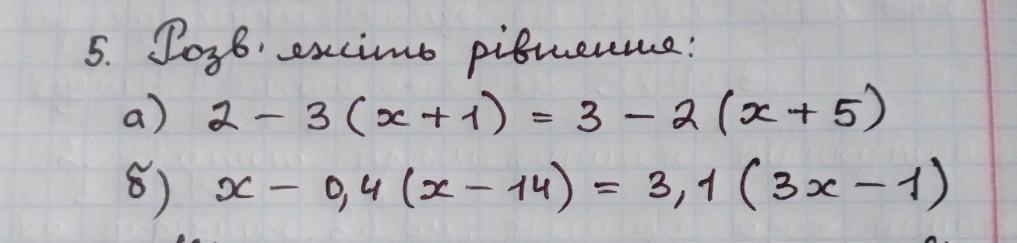 5. Розв'яжіть рівняння:
а) 2 - 3(x + 1) = 3 - 2(x + 5)
б) x - 0,4(x - 14) = 3,1(3x - 1)